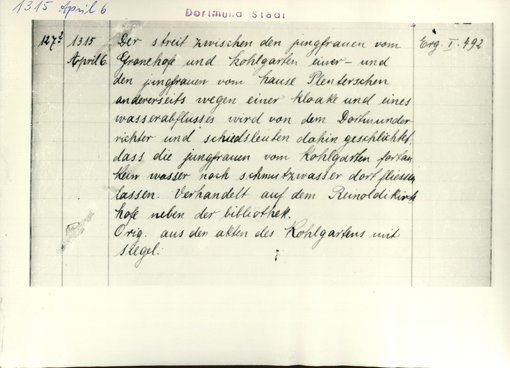 1315 April 6
Dortmund Stadt
127ᵃ 1315 April 6.
Der streit zwischen den jungfrauen vom
Gronehofe und Kohlgarten einer- und
den jungfrauen vom hause Plenterschen
andererseits wegen einer kloake und eines
wasserabflusses wird von dem Dortmunder
richter und schiedsleuten dahin geschlichtet,
dass die jungfrauen vom Kohlgarten fortan
kein wasser noch schmutzwasser dort fliessen
lassen. Verhandelt auf dem Reinoldikirch
hofe neben der bibliothek.
Orig. aus den akten des Kohlgartens mit
siegel.
Erg. I. 492